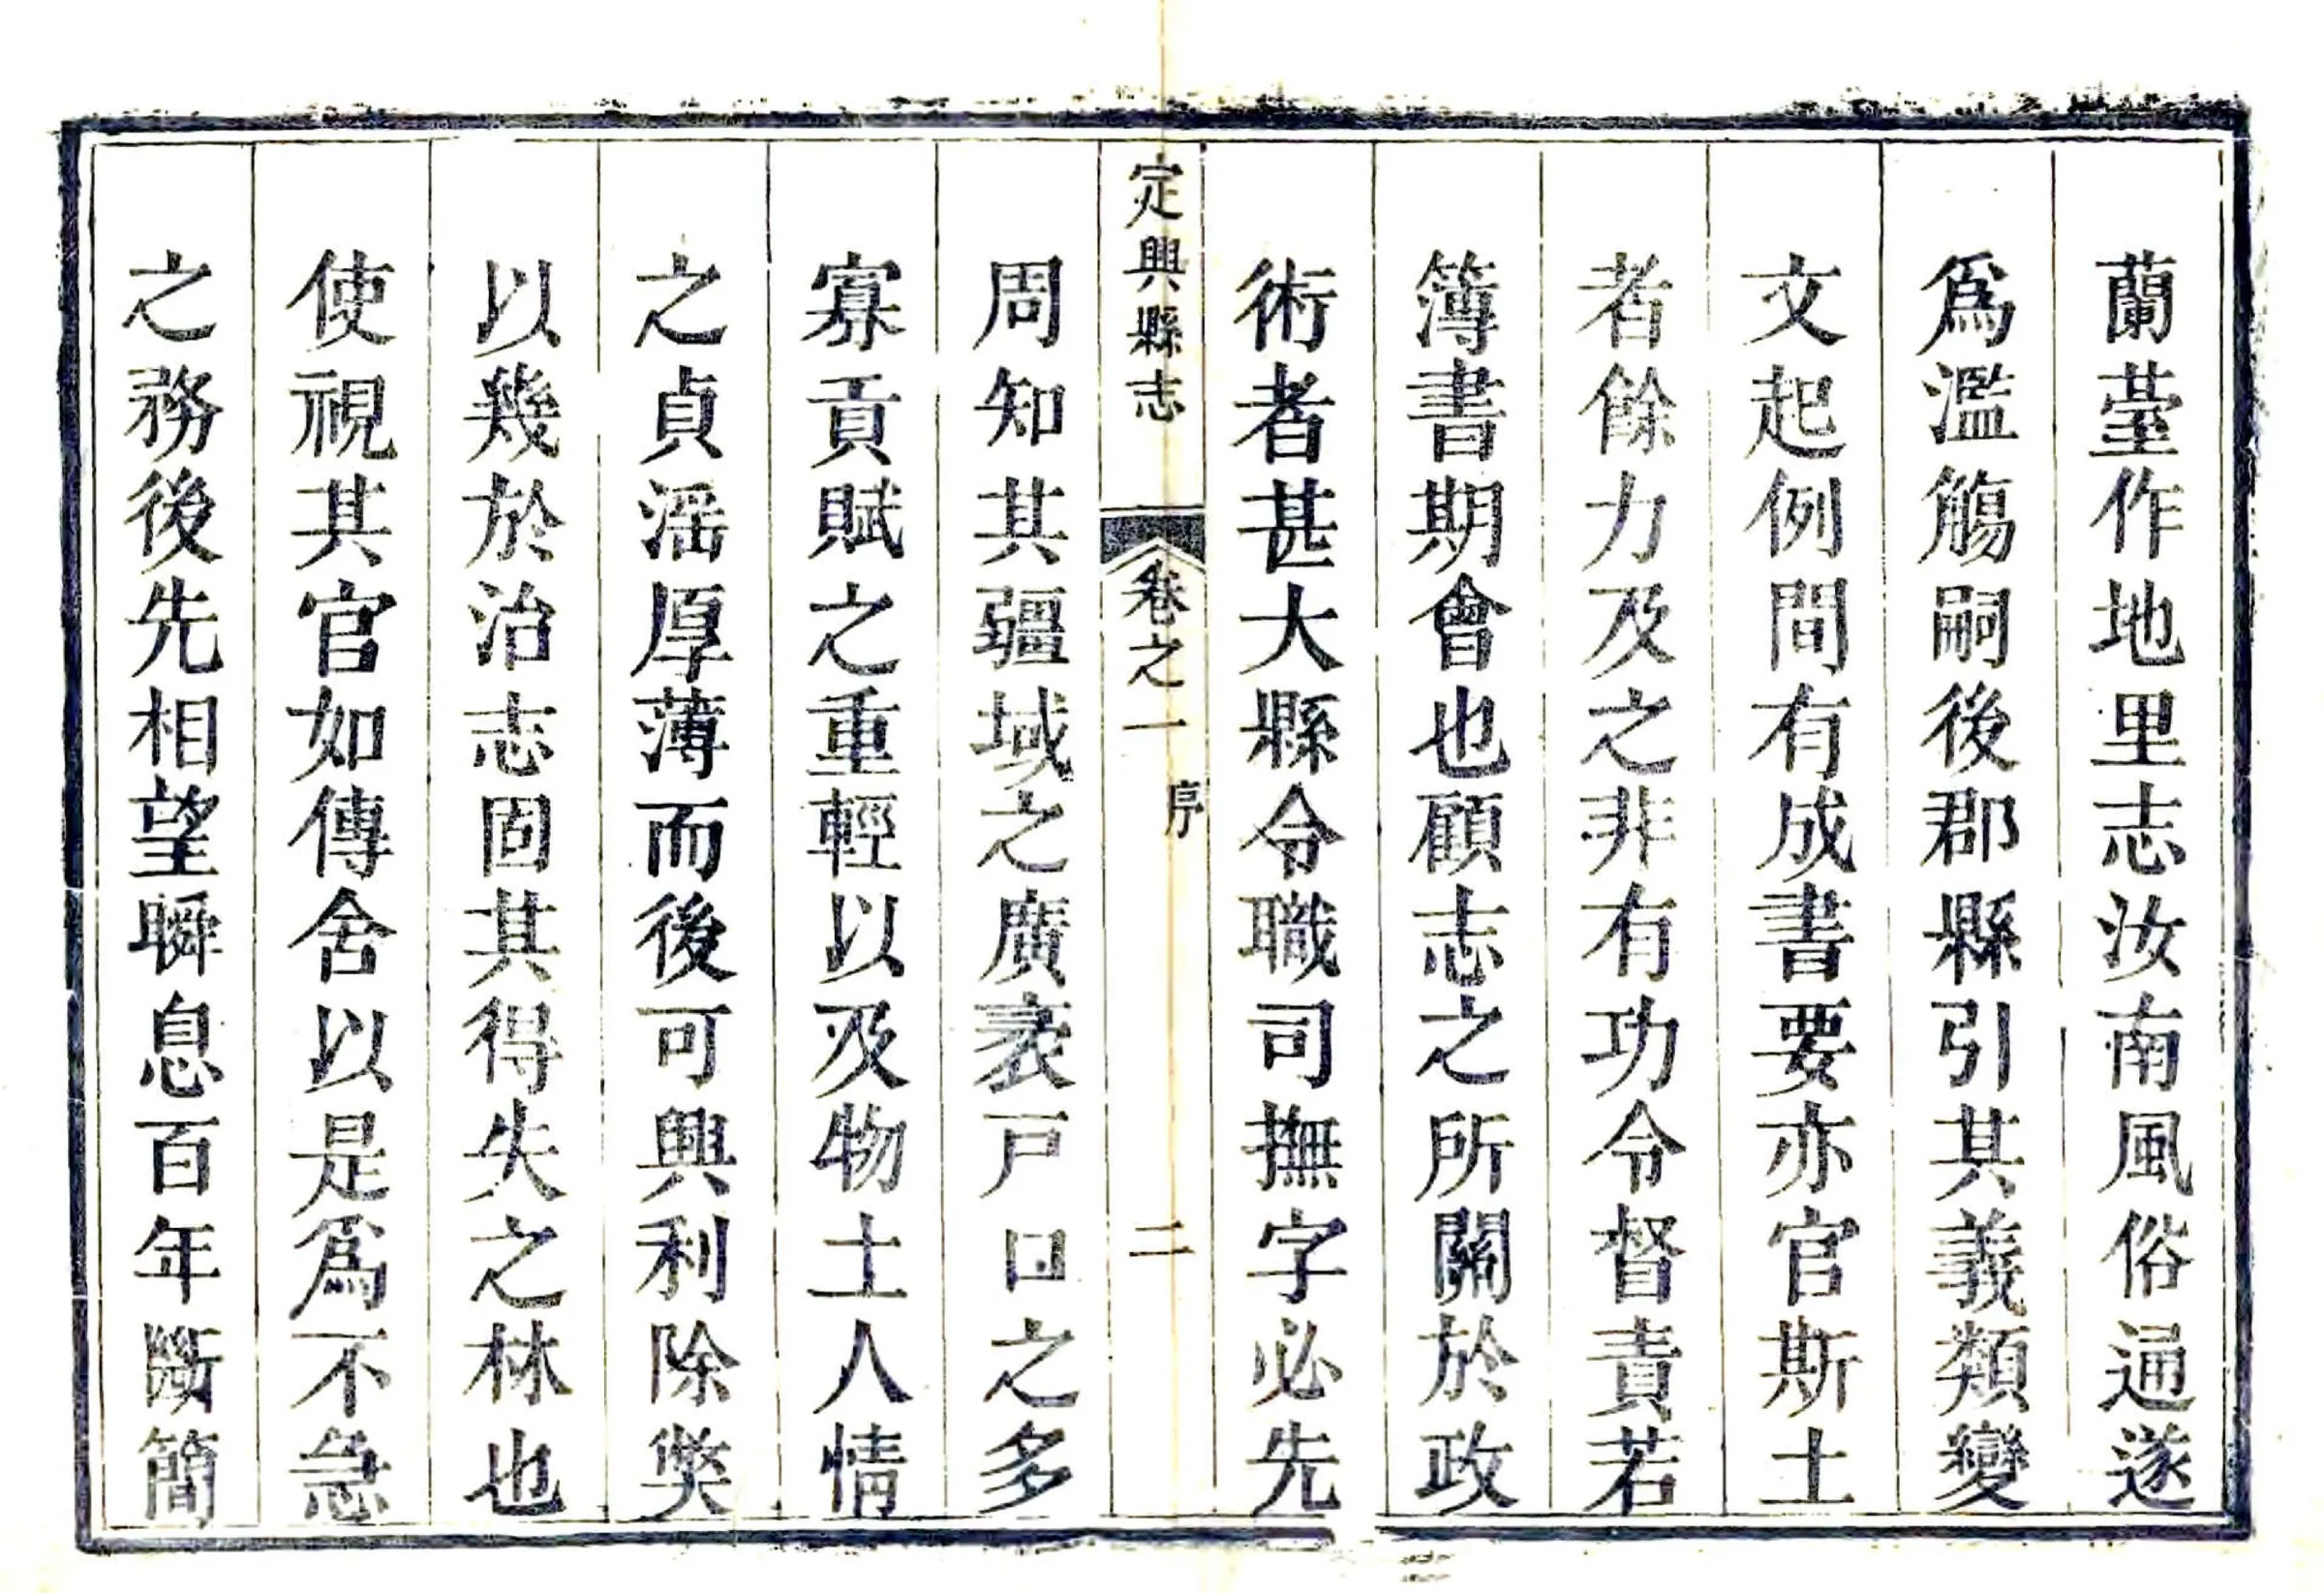 蘭臺作地里志汝南風俗通遂
爲濫觴嗣後郡縣引其義類變
文起例間有成書要亦官斯土
者餘力及之非有功令督責若
簿書期會也顧志之所關於政
術者甚大縣令職司撫字必先
定興縣志 卷之一 序 二
周知其疆域之廣袤戸口之多
寡貢賦之重輕以及物土人情
之貞滛厚薄而後可興利除獘
以幾於治志固其得失之林也
使視其官如傳舍以是爲不急
之務後先相望瞬息百年斷簡